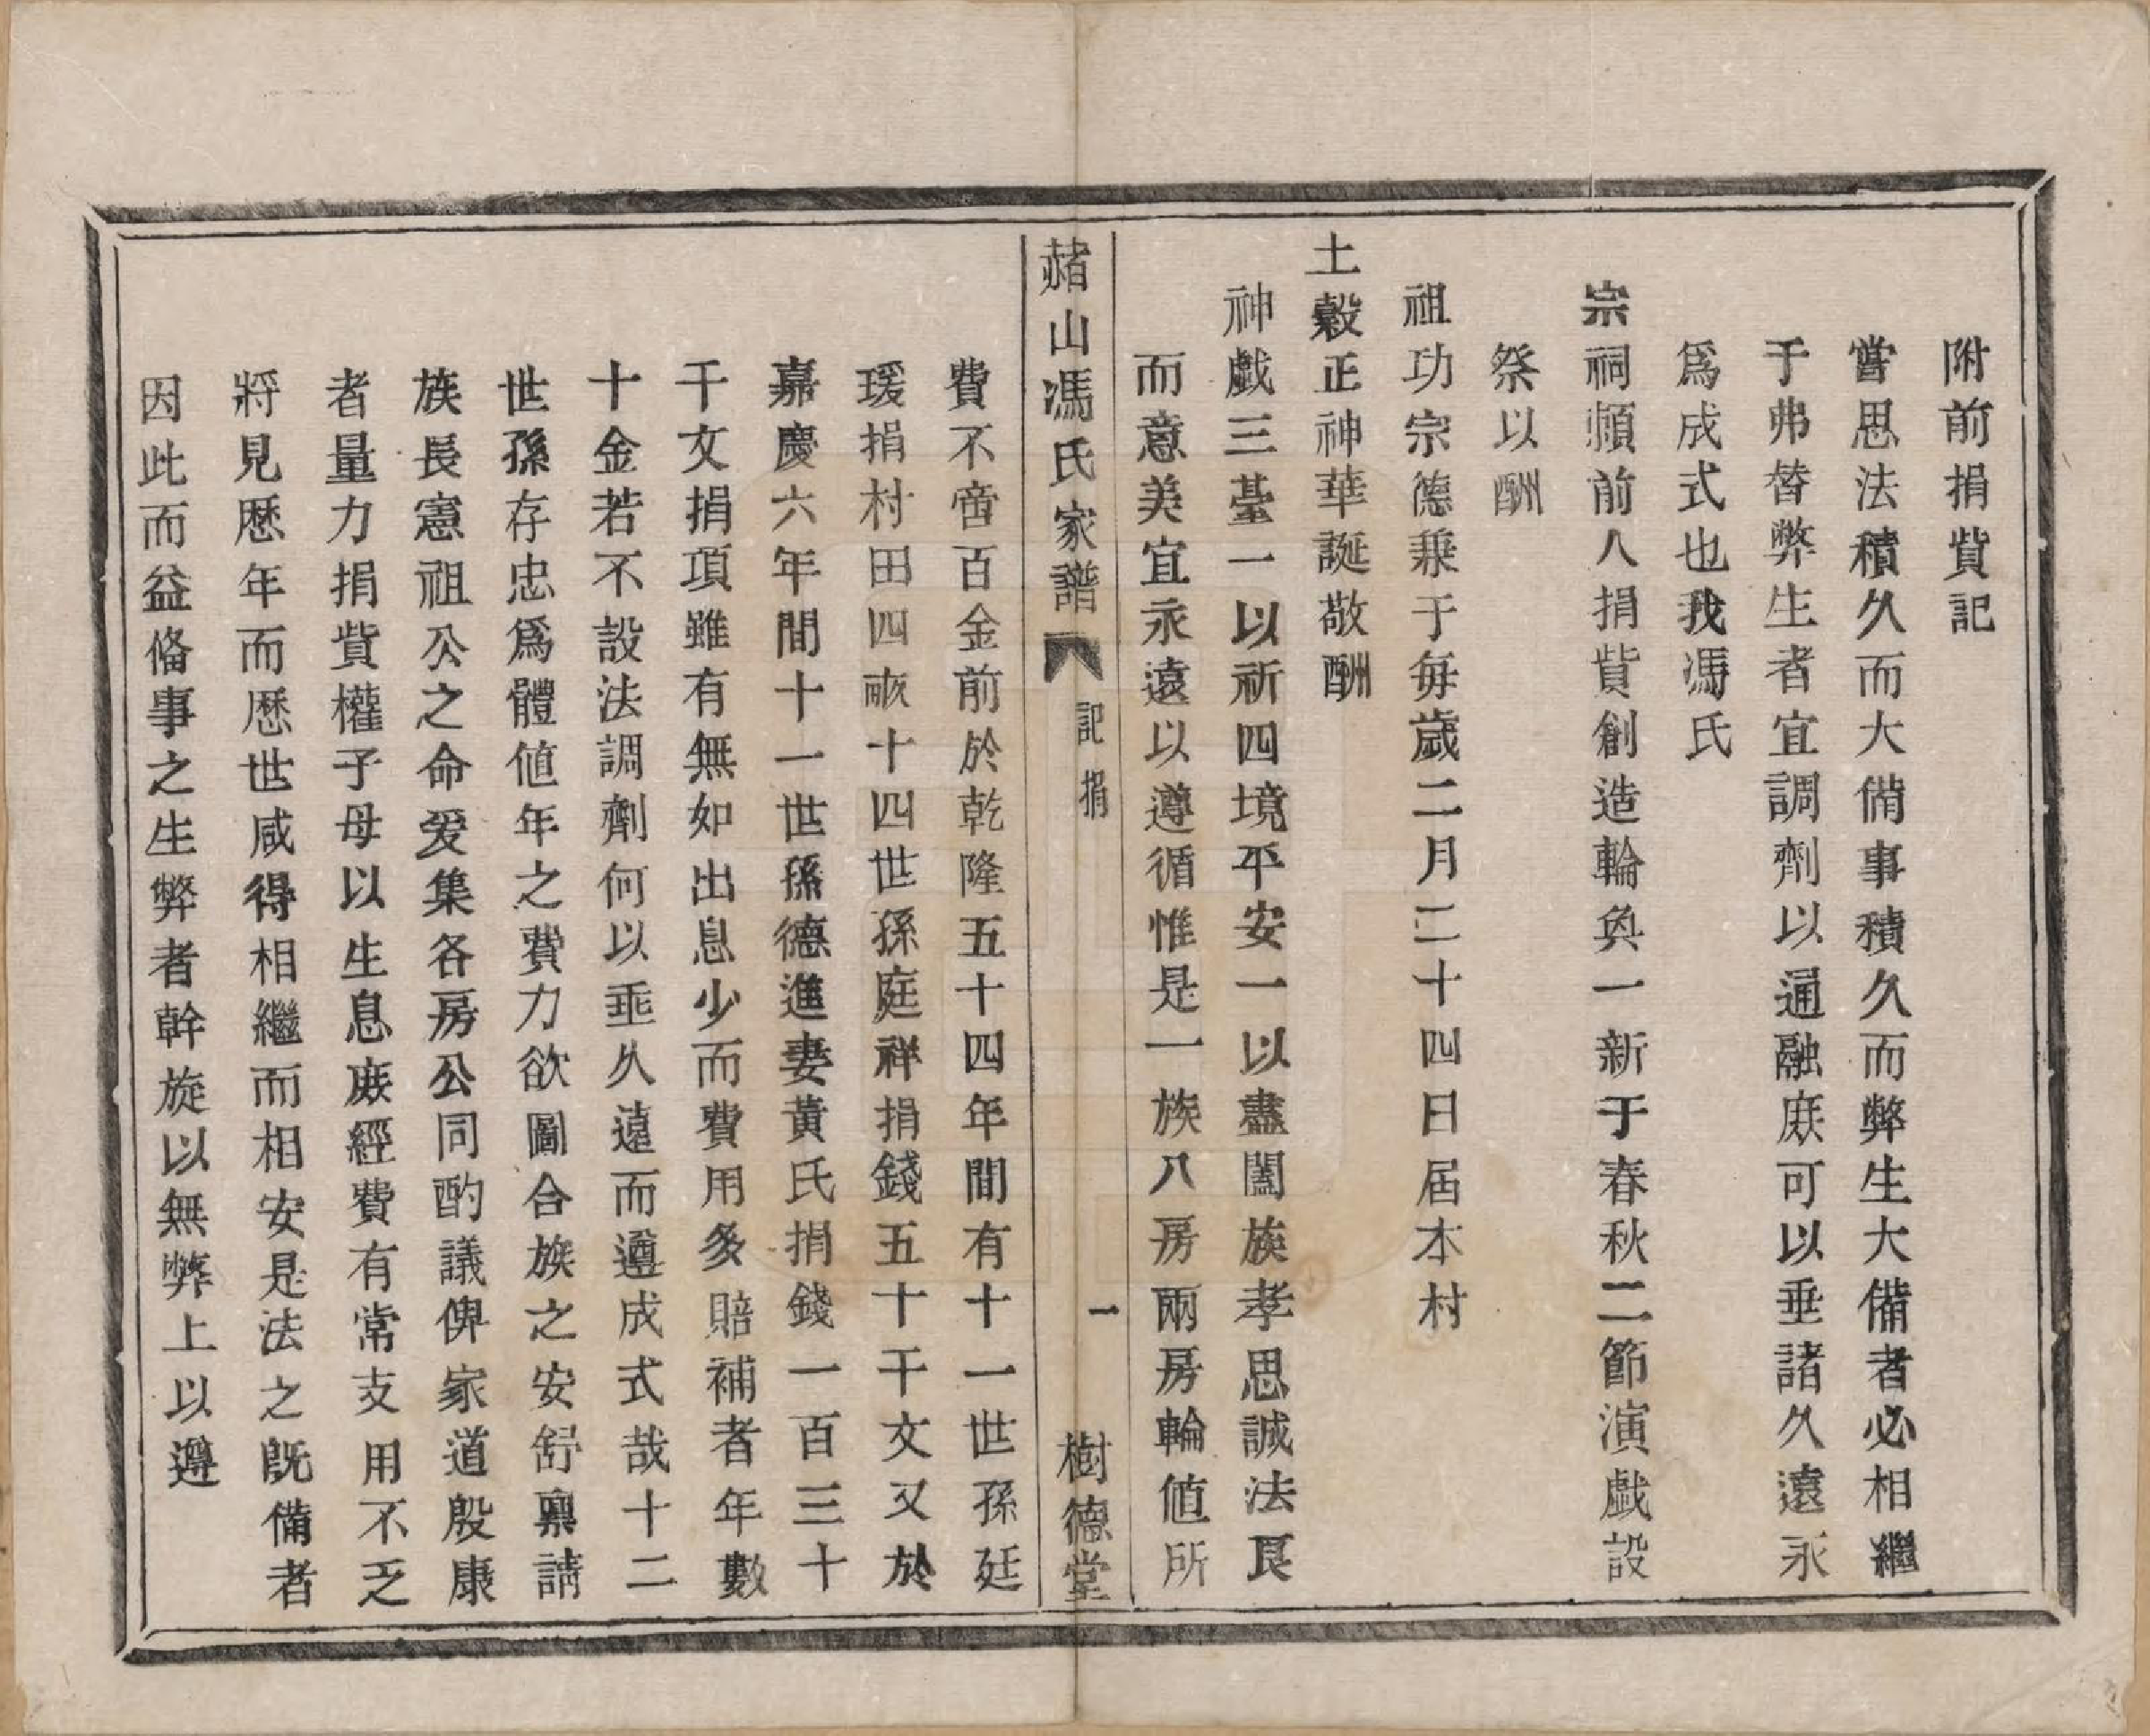 附前捐貲記
嘗思法積久而大備事積久而弊生大備者必相繼
于弗替弊生者宜調劑以通融庶可以垂諸久遠永
爲成式也我馮氏
宗祠頼前人捐貲創造輪奐一新于春秋二節演戲設
祭以酬
祖功宗德乗于每歲二月二十四日屆本村
土穀正神華誕敬酬
神戲三臺一以祈四境平安一以盡闔族孝思誠法良
而意美宜永遠以遵循惟是一族八房兩房輪値所
赭山馮氏家譜 記捐 一 樹德堂
費不啻百金前於乾隆五十四年間有十一世孫廷
瑗捐村田四畝十四世孫庭祥捐錢五十千文又於
嘉慶六年間十一世孫德進妻黃氏捐錢一百三十
千文捐項雖有無如出息少而費用多賠補者年數
十金若不設法調劑何以垂久遠而遵成式哉十二
世孫存忠爲體値年之費力欲圖合族之安舒禀請
族長憲祖公之命爰集各房公同酌議俾家道殷康
者量力捐貲權子母以生息庶經費有常支用不乏
將見歷年而歷世咸得相繼而相安是法之既備者
因此而益脩事之生弊者幹旋以無弊上以遵